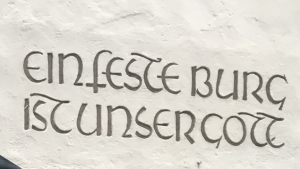 EIN FESTE BURG
IST UNSER GOTT